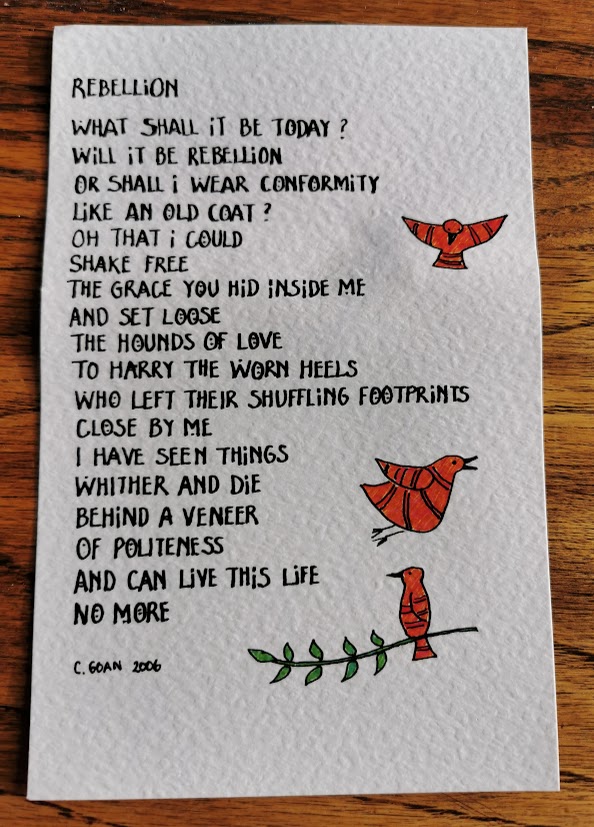 REBELLiON
WHAT SHALL iT BE TODAY ?
WiLL iT BE REBELLiON
OR SHALL i WEAR CONFORMiTY
LiKE AN OLD COAT ?
OH THAT i COULD
SHAKE FREE
THE GRACE YOU HiD iNSiDE ME
AND SET LOOSE
THE HOUNDS OF LOVE
TO HARRY THE WORN HEELS
WHO LEFT THEiR SHUFFLiNG FOOTPRiNTS
CLOSE BY ME
I HAVE SEEN THiNGS
WHiTHER AND DiE
BEHiND A VENEER
OF POLiTENESS
AND CAN LiVE THiS LiFE
NO MORE
C. GOAN 2006